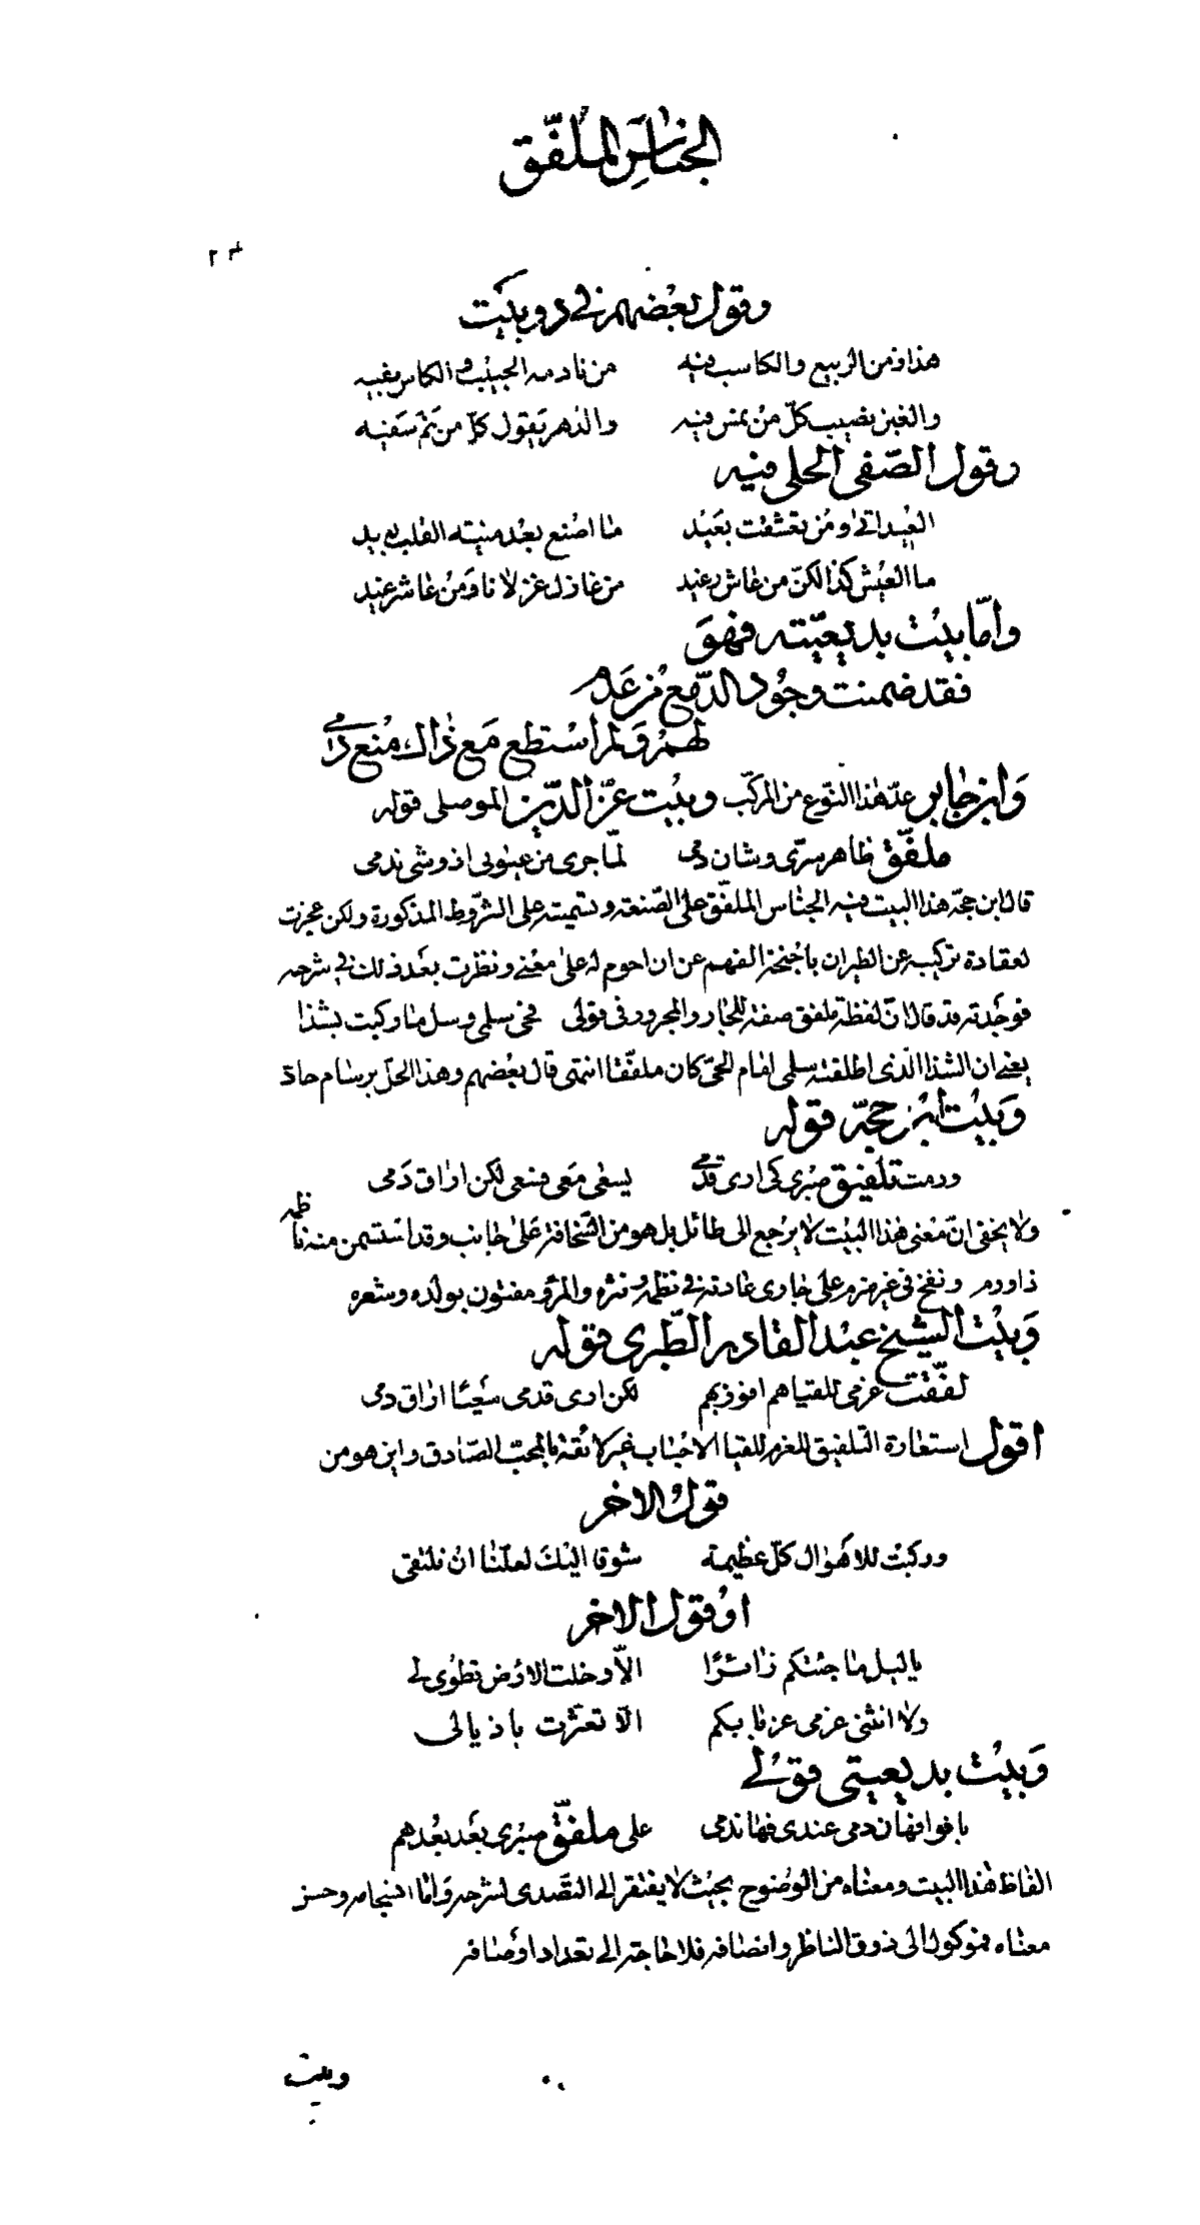 الجناس الملفّق
وقول بعضهم في دوبيت
هذا زمن الربيع والكاسب فيه من نادمه الحبيب والكاس بفيه
والغبن نصيب كلّ من يمس فيه والدهر يقول كلّ من تمّ سفيه
وقول الصّفي الحلي فيه
العيد اتى ومن تعشقت بعيد ما اصنع بعد منيته القلب بعيد
ما العيش كذا لكنّ من عاش رغيد من غازل غزلانا ومن عاشر غيد
وامّا بيت بديعيّته فهو
فقد ضمنت وجود الدّمع من عدم
لهم ولم استطع مع ذاك منع دمي
وابن جابر عدّ هذا النّوع من المركّب وبيت عزّ الدّين الموصلي قوله
ملفّق ظاهر سرّى وشان دمى لمّا جرى من عيونى اذ وشى ندمى
قال ابن حجّة هذا البيت فيه الجناس الملفّق على الصّنعة وتسميته على الشّروط المذكورة ولكن عجزت
لعقادة تركيبه عن الطيران باجنحة الفهم عن ان احوم له على معنى ونظرت بعد ذلك في شرحه
فوجدته قد قال انّ لفظة ملفق صفة للجار والمجرور فى قولى فحى سلمى وسل ما ركبت بشذا
يعني ان الشذا الّذى اطلقته سلمى امام الحىّ كان ملفّقا انتهى قال بعضهم وهذا الحلّ برسام حادّ
وبيت ابن حجّة قوله
ورمت تلفيق صبرى كى ارى قدمي يسعى معى فسعى لكن اراق دمى
ولا يخفى انّ معنى هذا البيت لا يرجع الى طائل بل هو من السّخافة على جانب وقد استسمن منه ناظمه
ذا ورم ونفخ فى غير ضرم على جارى عادته في نظمه ونثره والمرؤ مفتون بولده وشعره
وبيت الشيخ عبد القادر الطّبرى قوله
لفّقت عزمى للقياهم افوز بهم لكن ارى قدمى سَعيًا اراق دمى
اقول استعارة التلفيق للعزم للقيا الاحباب غير لائقة بالمحبّ الصّادق واين هو من
قول الاخر
وركبت للاهوال كلّ عظيمة شوقا اليك لعلّنا ان نلتقى
او قول الاخر
يا ليل ما جئتكم زائرًا الاّ وخلت الارض تطوى لي
ولا انثنى عزمى عن بابكم الاّ تعثّرت باذيالى
وبيت بديعيتى قولي
بانوا فهان دمى عندى فها ندمى على ملفّق صبرى بعد بعدهم
الفاظ هذا البيت ومعناه من الوضوح بحيث لا يفتقر الى التّصدى لشرحه وامّا انسجامه وحسن
معناه فموكول الى ذوق الناظر وانصافه فلا حاجة الى تعداد اوصافه
وبيت